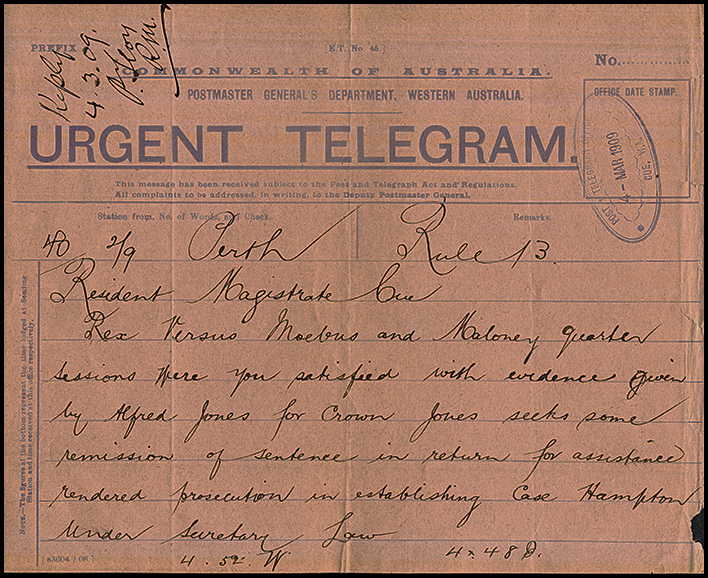 PREFIX
E.T. No. 45
No.
Reply
4.3.09.
R.M.
COMMONWEALTH OF AUSTRALIA.
POSTMASTER GENERAL'S DEPARTMENT, WESTERN AUSTRALIA.
OFFICE DATE STAMP.
POST & TELEGRAPH OFFICE
4 - MAR 1909
CUE, W.A.
URGENT TELEGRAM.
This message has been received subject to the Post and Telegraph Act and Regulations.
All complaints to be addressed, in writing, to the Deputy Postmaster General.
Station from, No. of Words, and Check.
Remarks.
40 2/9 Perth Rule 13.
Resident Magistrate Cue
Rex Versus Moebus and Maloney quarter
sessions Were you satisfied with evidence given
by Alfred Jones for Crown Jones seeks some
remission of sentence in return for assistance
rendered prosecution in establishing Case Hampton
Under Secretary Law
4.52. W 4.48 D.
NOTE.—The figures at the bottom represent the time lodged at Sending
Station and time received at this office respectively.
83604 / 08